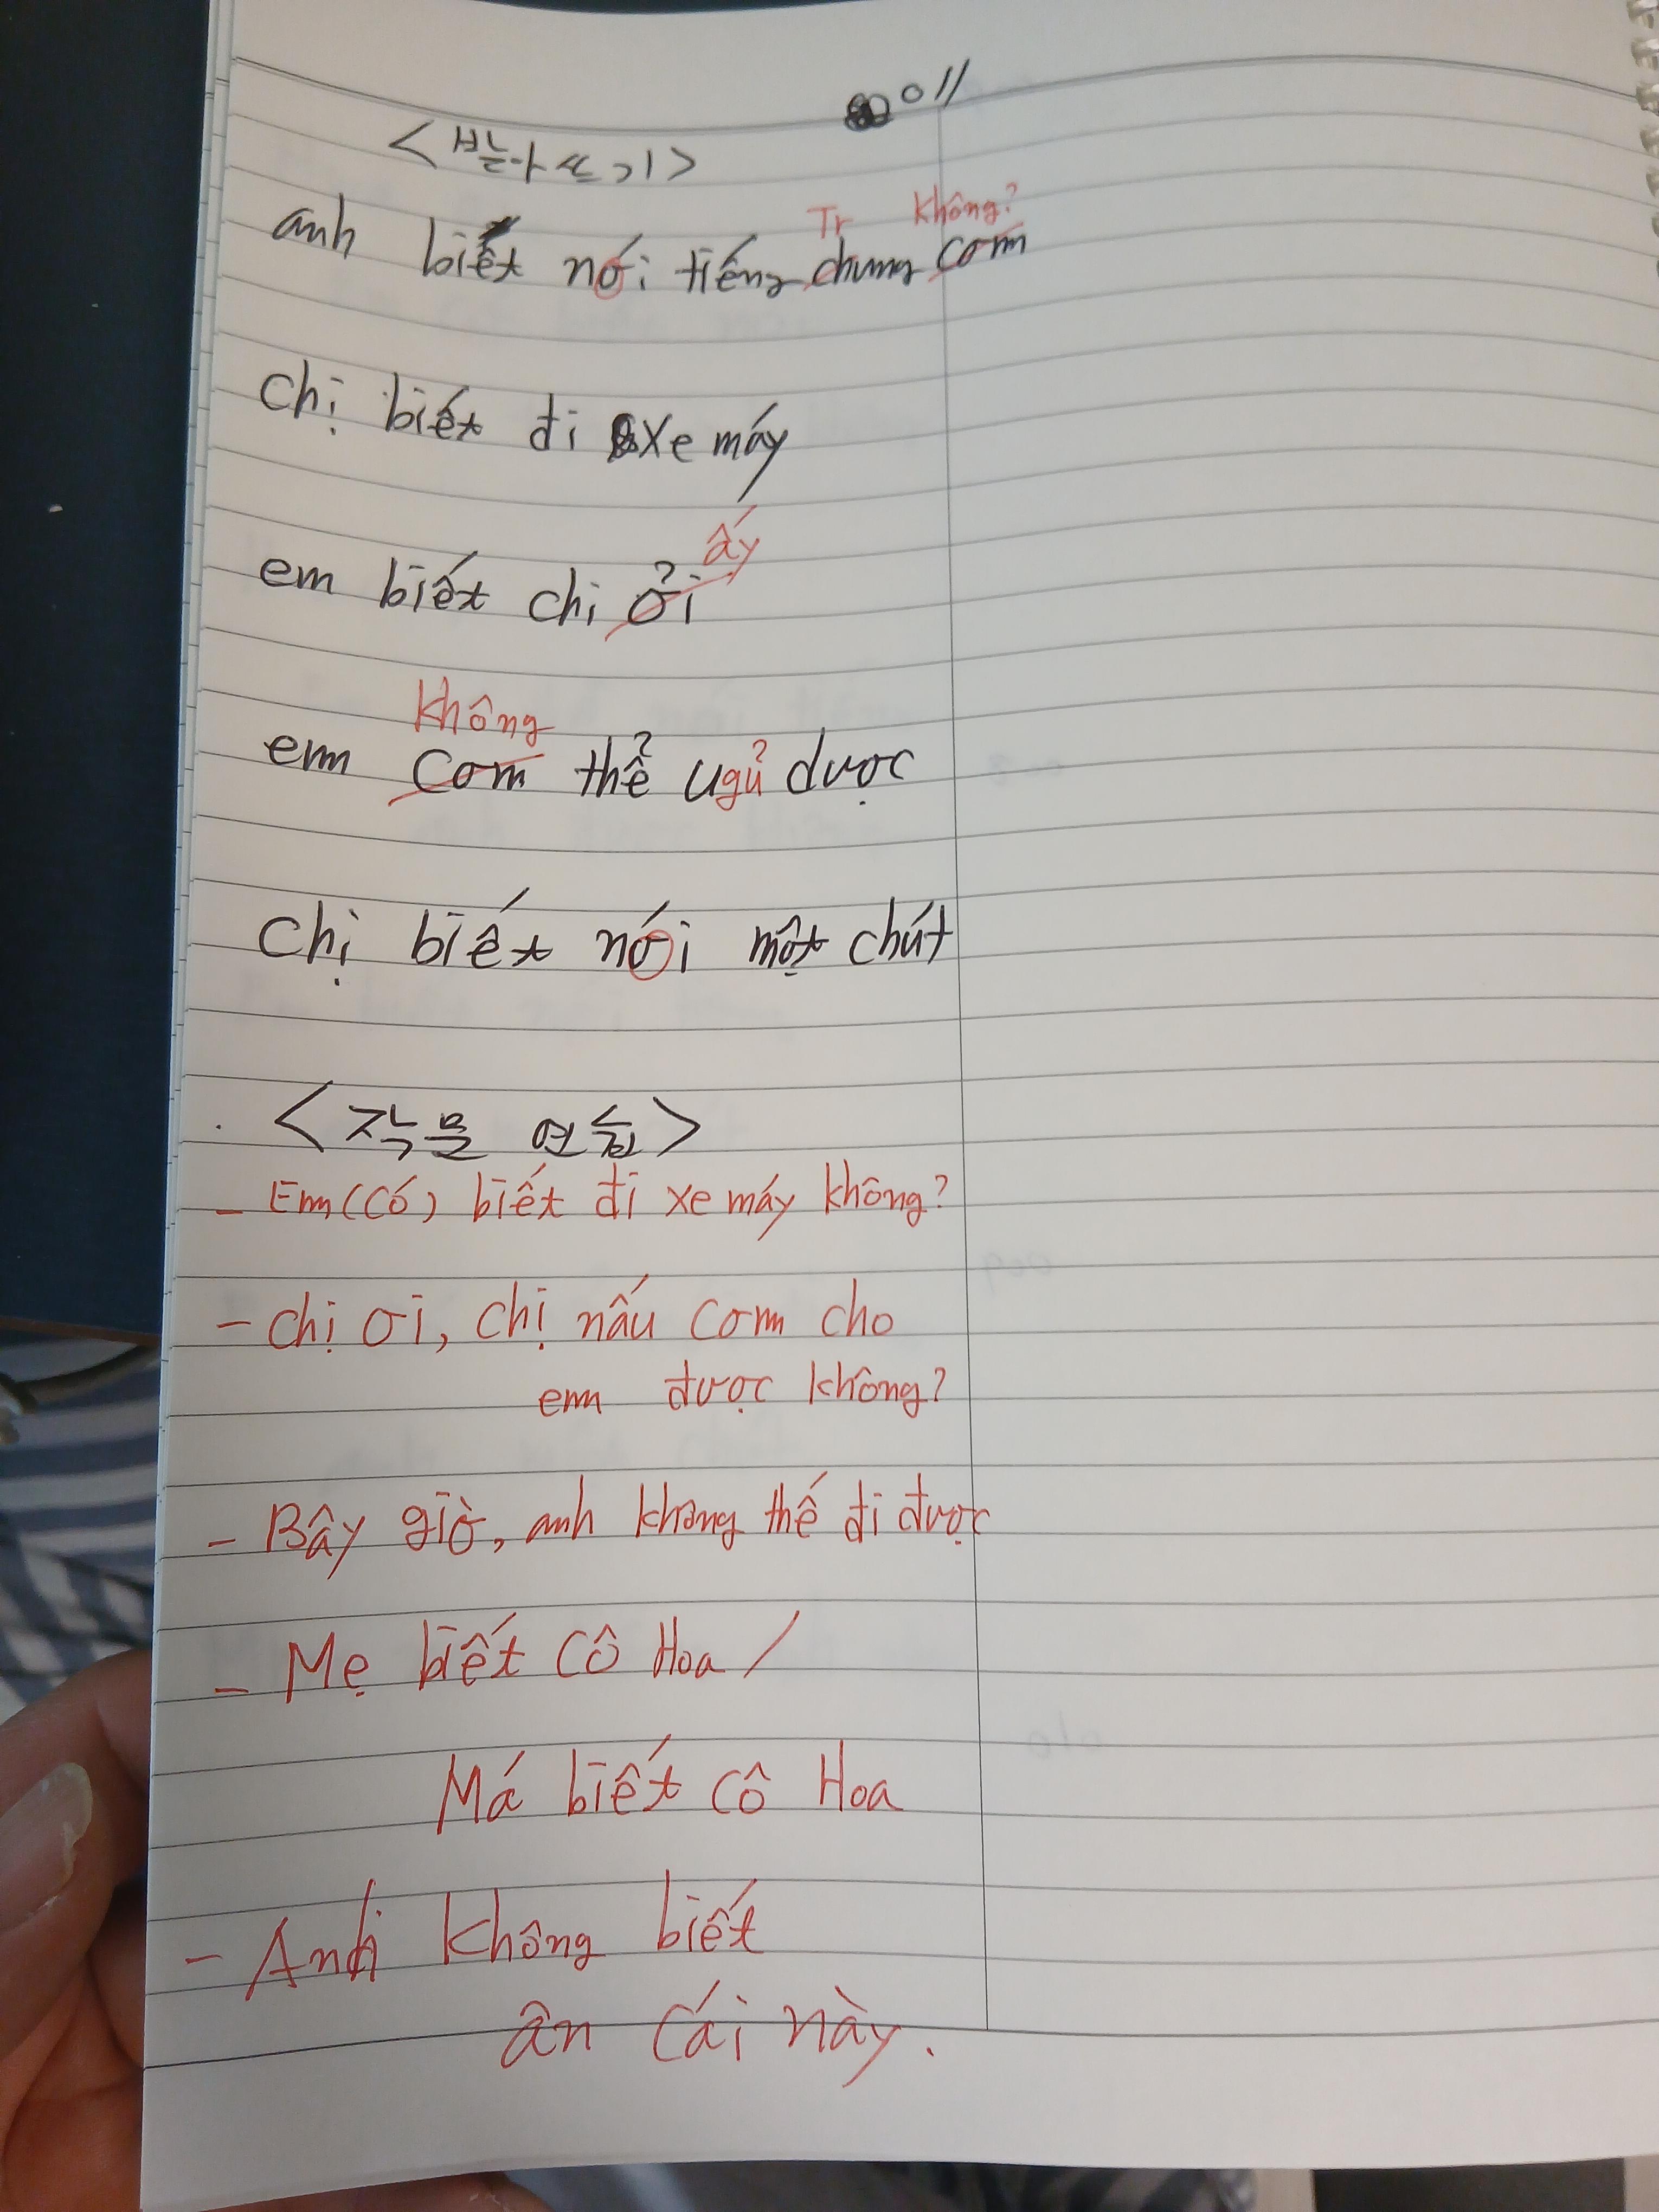 011
<받아쓰기>
Tr không?
anh biết nới tiếng chung cơm
chị biết đi xe máy
ấy
em biết chị ởi
không
em cơm thể ugủ dược
chị biết nới một chút
<작문 연습>
- Em (có) biết đi xe máy không?
- chị ơi, chị nấu cơm cho
em được không?
- Bây giờ, anh không thế đi được
- Mẹ biết cô Hoa /
Má biết cô Hoa
- Anh không biết
ân cái này.